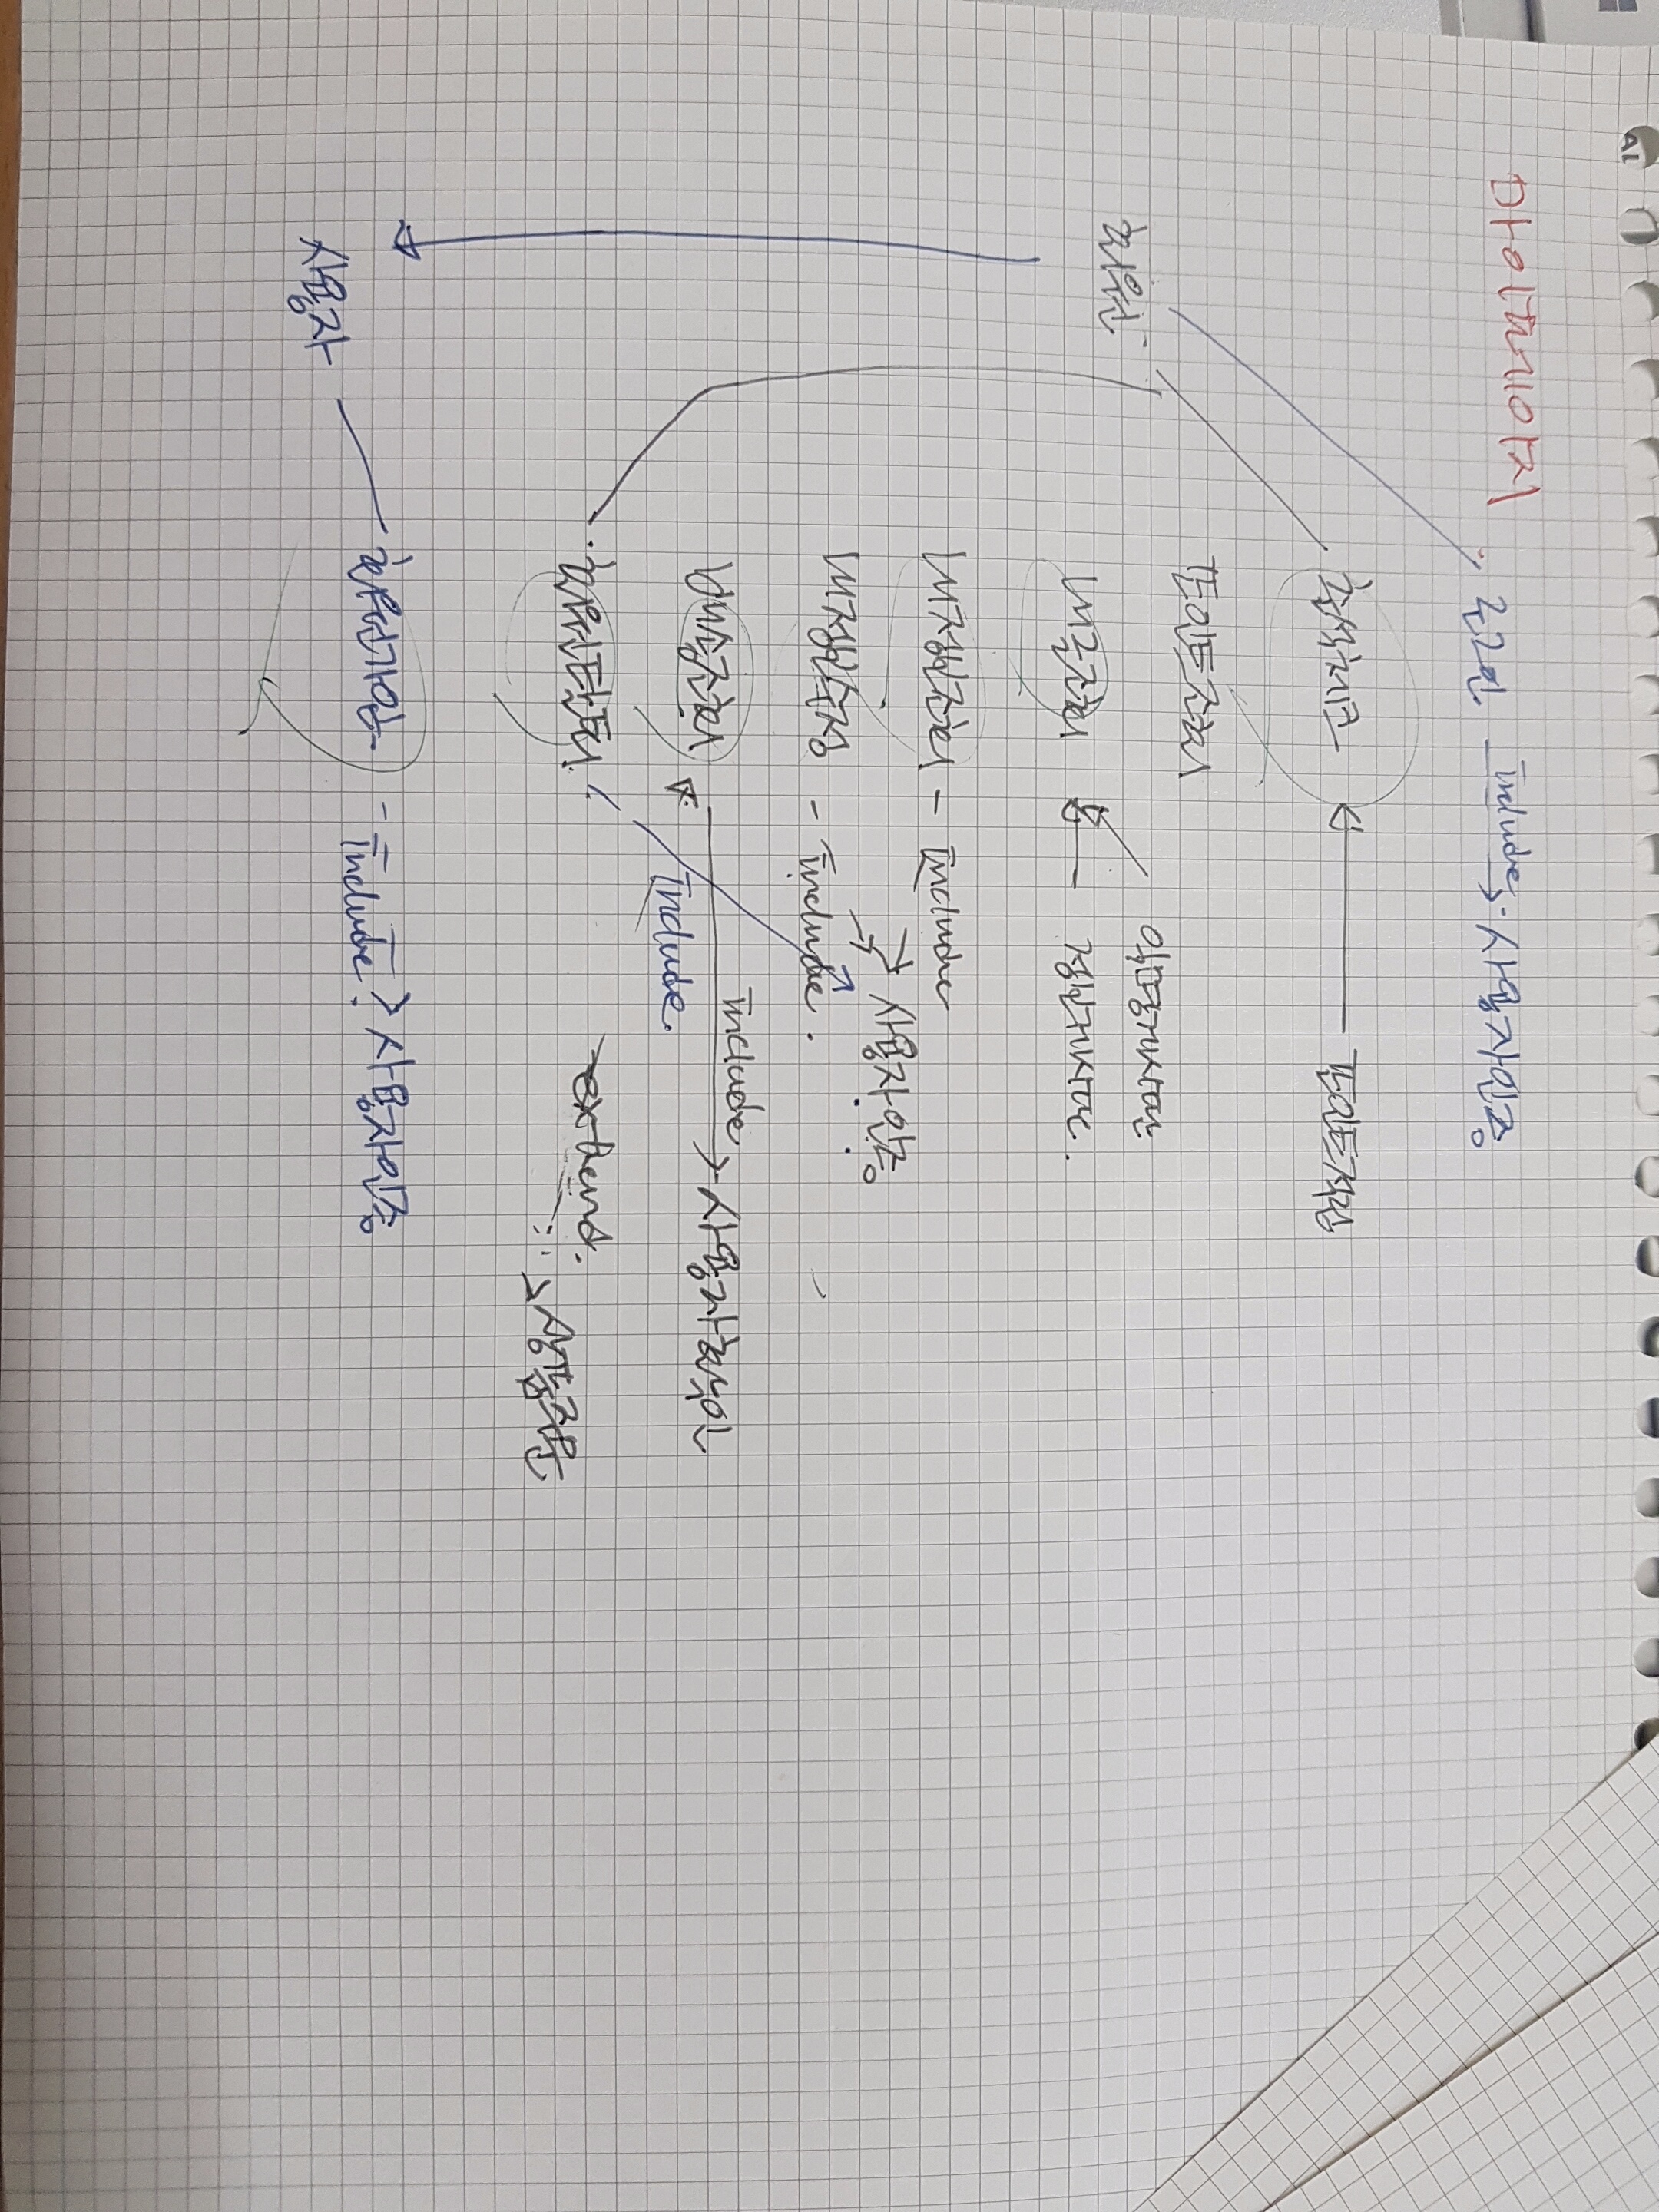 마이페이지
로그인 include 사용자인증
출석체크 포인트적립
포인트조회
익명게시판
회원
내글조회 정보게시판.
내정보조회 - include
사용자인증
내정보수정 - include.
include
배송조회 사용자확인
include.
회원탈퇴 extend.
상품주문
회원가입 - include 사용자인증
사용자